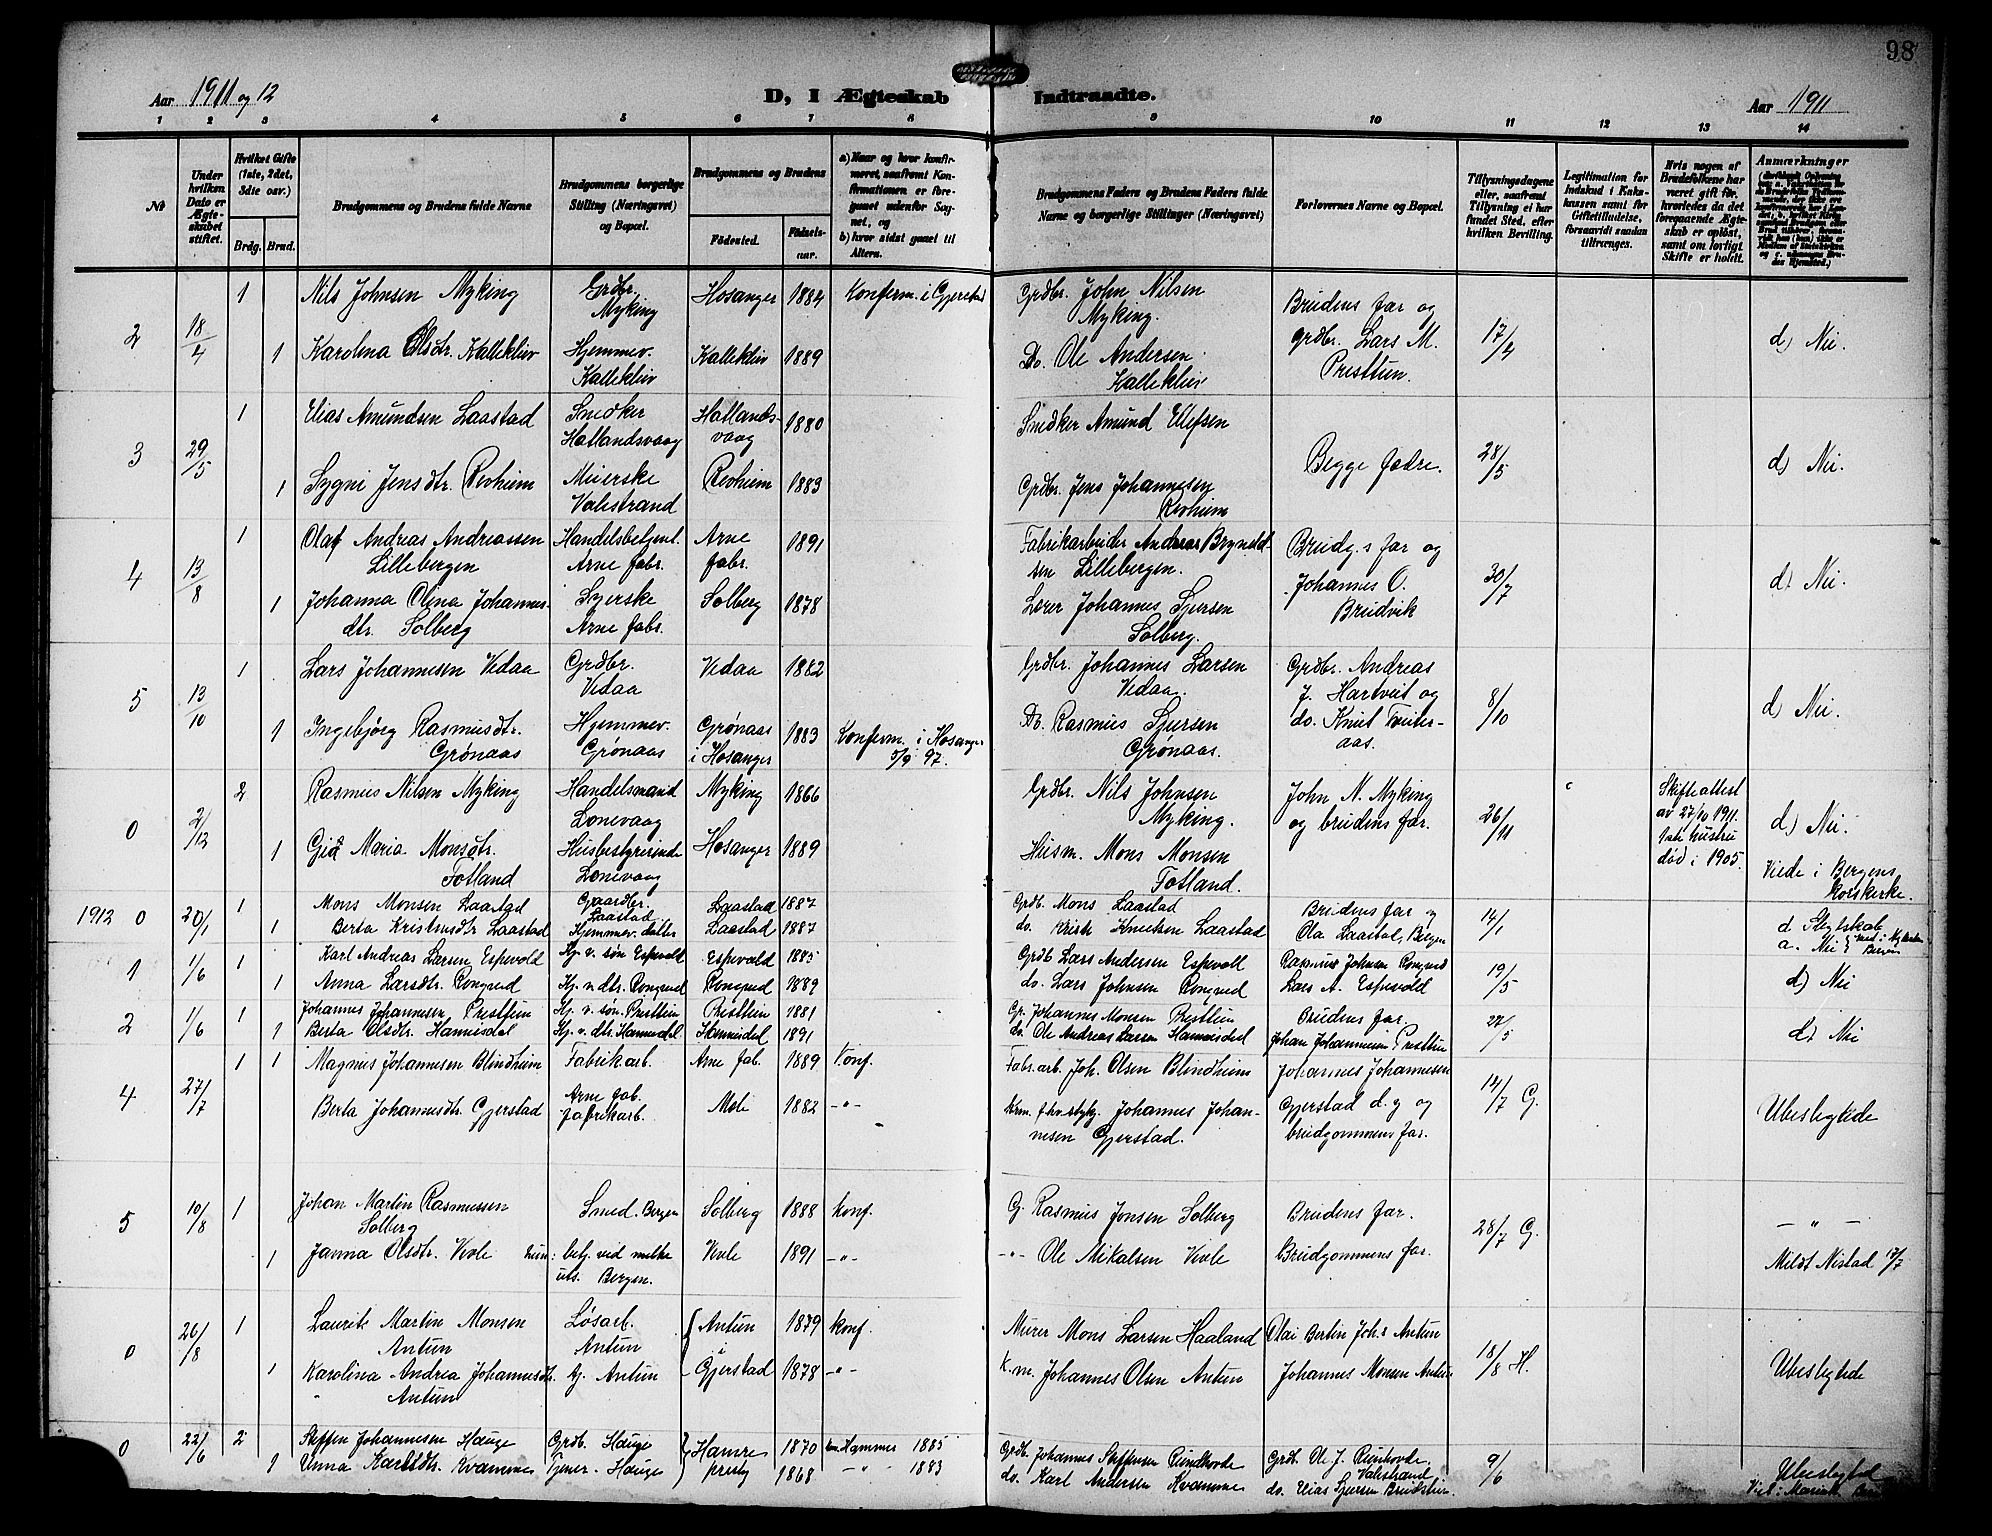 98
Aar 1911 og 12
D, I Ægteskab Indtraadte.
Aar 1911
1 2 3 4 5 6 7 8 9 10 11 12 13 14
№
Under hvilken Dato er Ægteskabet stiftet.
Hvilket Gifte (1ste, 2det, 3die osv.)
Brdg. Brud.
Brudgommens og Brudens fulde Navne
Brudgommens borgerlige Stilling (Næringsvei) og Bopæl.
Brudgommens og Brudens
Fødested.
Fødsels-aar.
a) Naar og hvor konfirmeret, saafremt Konfirmationen er foregaaet udenfor Sognet, og
b) hvor sidst gaaet til Alters.
Brudgommens Faders og Brudens Faders fulde Navne og borgerlige Stillinger (Næringsvei)
Forlovernes Navne og Bopæl.
Tillysningsdagene eller, saafremt Tillysning ei har fundet Sted, efter hvilken Bevilling.
Legitimation for Indskud i Enkekassen samt for Giftetilladelse, forsaavidt saadan tiltrænges.
Hvis nogen af Brudefolkene har været gift før, hvorledes da det foregaaende Ægteskab er opløst, samt om lovligt Skifte er holdt.
Anmærkninger
2 18/4 1 Nils Johnsen Myking Grdbr. Myking Hosanger 1884 Konferm. i Gjerstad Grdbr. John Nilsen Myking. Brudens far og grdbr. Lars M. Presttun. 17/4 d) Nei.
1 Karolina Olsdtr. Kalleklev Hjemmev. Kalleklev Kalleklev 1889 Do. Ole Andersen Kalleklev
3 29/5 1 Elias Amundsen Laastad Snedker Hatlandsvaag Hatlandsvaag 1880 Snedker Amund Ellefsen Begge fædre. 28/5 d) Nei.
1 Sygni Jensdtr. Revheim Meierske Valestrand Revheim 1883 Grdbr. Jens Johannesen Revheim
4 13/8 1 Olaf Andreas Andreassen Lillebergen Handelsbetjent. Arne fabr. Arne fabr. 1891 Fabrikarbeider Andreas Brynildsen Lillebergen. Brudg.s far og Johannes O. Bruvik 30/7 d) Nei.
1 Johanna Olina Johannesdtr. Solberg Syerske Arne fabr. Solberg 1878 Lærer Johannes Sjursen Solberg.
5 13/10 1 Lars Johannesen Vedaa Grdbr. Vedaa Vedaa 1882 Grdbr. Johannes Larsen Vedaa. Grdbr. Andreas J. Hartveit og do. Knut Tveiteraas. 8/10 d) Nei.
1 Ingebjørg Rasmusdtr. Grønaas Hjemmev. Grønaas Grønaas i Hosanger 1883 Konferm. i Hosanger 5/9 97. Do. Rasmus Sjursen Grønaas.
0 2/12 2 Rasmus Nilsen Myking Handelsmand Lonevaag Myking 1866 Grdbr. Nils Johnsen Myking. John N. Myking og brudens far. 26/11 Skifteattest av 27/10 1911. 1ste hustru død i 1905. d) Nei.
1 Maria Monsdtr. Fotland Husbestyrerinde Lonevaag Hosanger 1889 Husm. Mons Monsen Fotland. Viede i Bergens Korskirke.
1912 0 20/1 1 Mons Monsen Laastad Gaardbr. Laastad Laastad 1887 Grdb. Mons Laastad Brudens far og Ola Laastad, Bergen 14/1
1 Berta Laastad Hjemmev. datter Laastad 1887 do. Knutsen Laastad
1 1/6 1 Karl Andreas Larsen Espevold Hj. v. søn Espevold Espevold 1885 Grdb Lars Andersen Espevoll Rasmus Johnsen Rongved 19/5 d) Nei
1 Anna Larsdtr. Rongved Hj. v dtr. Rongved Rongved 1889 do. Lars Johnsen Rongved Lars A. Espevold
2 1/6 1 Johannes Johannesen Presttun Hj. v. søn Presttun Presttun 1881 Gr. Johannes Monsen Presttun Brudens far. 22/5 d) Nei
1 Berta Olsdtr. Hannisdal Hj. v. dtr. Hannisdal Hannisdal 1891 do. Ole Andreas Larsen Hannisdal Johan Johannesen Presttun
4 27/7 1 1 Magnus Johannesen Blindheim Fabrikarb. Arne fab. Arne fab. 1889 Konf. Fabr. arb. Joh. Olsen Blindheim Johannes Johannesen Gjerstad d. y og brudgommens far. 14/7 G. Ubeslegtede
Berta Johannesdtr. Gjerstad fabrikarb. 1882 -"- Johannes Johannesen Gjerstad.
5 10/8 1 Johan Martin Rasmussen Solberg Smed. Bergen Solberg 1888 Konf. G. Rasmus Jonsen Solberg Brudens far. 28/7 G. - " -
1 Janna Olsdtr. Vevle betj. ved melke uts. Bergen. Vevle 1891 -"- -"- Ole Mikalsen Vevle Brudgommens far. Meldt Nistad 17/7
0 26/8 1 Laurits Martin Monsen Antun Løsarb. Antun Antun 1879 Konf. Murer Mons Larsen Haaland Olai Bertin Joh.s Antun 18/8 H. Ubeslegtede
1 Karolina Andrea Johannesdtr. Antun Hj. Antun Gjerstad 1878 -"- K. m. Johannes Olsen Antun Johannes Monsen Antun
0 22/6 2 Steffen Johannesen Hauge Grdb. Hauge Hamre presteg 1870 Hammer 1885 Grdb. Johannes Steffensen Rundhovde Grdb. Ole J. Rundhovde, Valestrand 9/6 Ubeslegted
1 Anna Karlsdtr. Kvamme Tjener. Hauge 1868 - " - 1883 do. Karl Andersen Kvamme do. Elias Sjursen